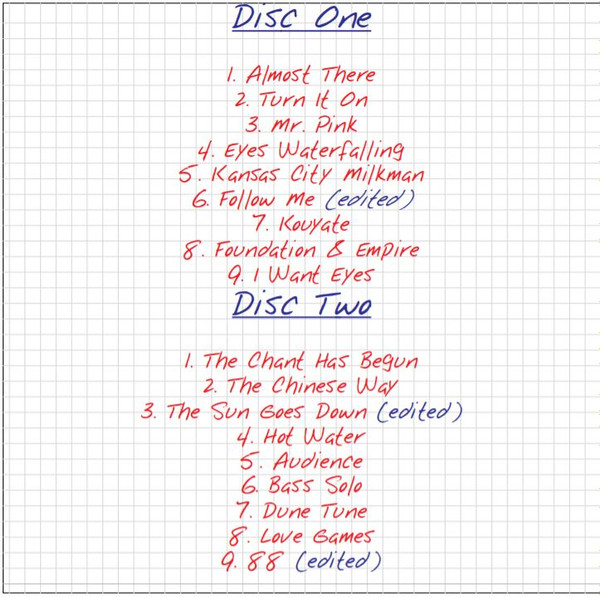 Disc One
1. Almost There
2. Turn It On
3. Mr. Pink
4. Eyes Waterfalling
5. Kansas City Milkman
6. Follow Me (edited)
7. Kouyate
8. Foundation & Empire
9. I Want Eyes
Disc Two
1. The Chant Has Begun
2. The Chinese Way
3. The Sun Goes Down (edited)
4. Hot Water
5. Audience
6. Bass Solo
7. Dune Tune
8. Love Games
9. 88 (edited)